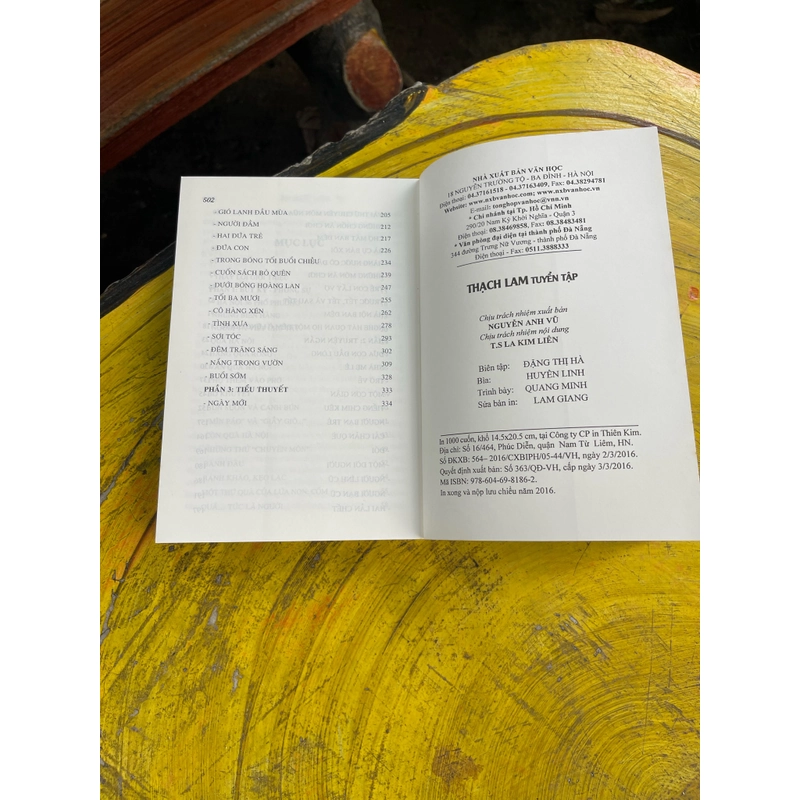 502
- GIÓ LẠNH ĐẦU MÙA 205
- NGƯỜI ĐẦM 212
- HAI ĐỨA TRẺ 217
- ĐỨA CON 226
- TRONG BÓNG TỐI BUỔI CHIỀU 234
- CUỐN SÁCH BỎ QUÊN
- DƯỚI BÓNG HOÀNG LAN 247
- TỐI BA MƯƠI 255
- CÔ HÀNG XÉN 262
- TÌNH XƯA 278
- SỢI TÓC 293
- ĐÊM TRĂNG SÁNG 302
- NẮNG TRONG VƯỜN 309
- BUỔI SỚM 328
PHẦN 3: TIỂU THUYẾT 333
- NGÀY MỚI 334
NHÀ XUẤT BẢN VĂN HỌC
18 NGUYỄN TRƯỜNG TỘ - BA ĐÌNH - HÀ NỘI
Điện thoại: 04.37161518 - 04.37163409, Fax: 04.38294781
Website: www.nxbvanhoc.com; www.nxbvanhoc.vn
E-mail: tonghopvanhoc@vnn.vn
* Chi nhánh tại Tp. Hồ Chí Minh
290/20 Nam Kỳ Khởi Nghĩa - Quận 3
Điện thoại: 08.38469858, Fax: 08.38483481
* Văn phòng đại diện tại thành phố Đà Nẵng
344 đường Trưng Nữ Vương - thành phố Đà Nẵng
Điện thoại - Fax: 0511.3888333
THẠCH LAM TUYỂN TẬP
Chịu trách nhiệm xuất bản
NGUYỄN ANH VŨ
Chịu trách nhiệm nội dung
T.S LA KIM LIÊN
Biên tập: ĐẶNG THỊ HÀ
Bìa: HUYỀN LINH
Trình bày: QUANG MINH
Sửa bản in: LAM GIANG
In 1000 cuốn, khổ 14.5x20.5 cm, tại Công ty CP in Thiên Kim.
Địa chỉ: Số 16/464, Phúc Diễn, quận Nam Từ Liêm, HN.
Số ĐKXB: 564– 2016/CXBIPH/05-44/VH, ngày 2/3/2016.
Quyết định xuất bản: Số 363/QĐ-VH, cấp ngày 3/3/2016.
Mã ISBN: 978-604-69-8186-2.
In xong và nộp lưu chiểu năm 2016.